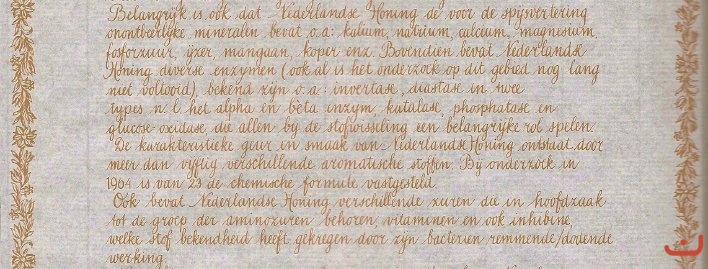 Belangrijk is ook dat Nederlandse Honing de voor de spijsvertering
onontbeerlijke mineralen bevat o.a: kalium, natrium, calcium, magnesium,
fosforzuur, ijzer, mangaan, koper enz. Bovendien bevat Nederlandse
Honing diverse enzymen (ook al is het onderzoek op dit gebied nog lang
niet voltooid), bekend zijn o.a: invertase, diastase in twee
types n.l. het alpha en bèta enzym, katalase, phosphatase en
glucose-oxidase, die allen bij de stofwisseling een belangrijke rol spelen.
De karakteristieke geur en smaak van Nederlandse Honing ontstaat door
meer dan vijftig verschillende aromatische stoffen. Bij onderzoek in
1964 is van 23 de chemische formule vastgesteld.
Ook bevat Nederlandse Honing verschillende zuren die in hoofdzaak
tot de groep der aminozuren behoren, vitaminen en ook inhibine,
welke stof bekendheid heeft gekregen door zijn bacteriën remmende/dodende
werking.